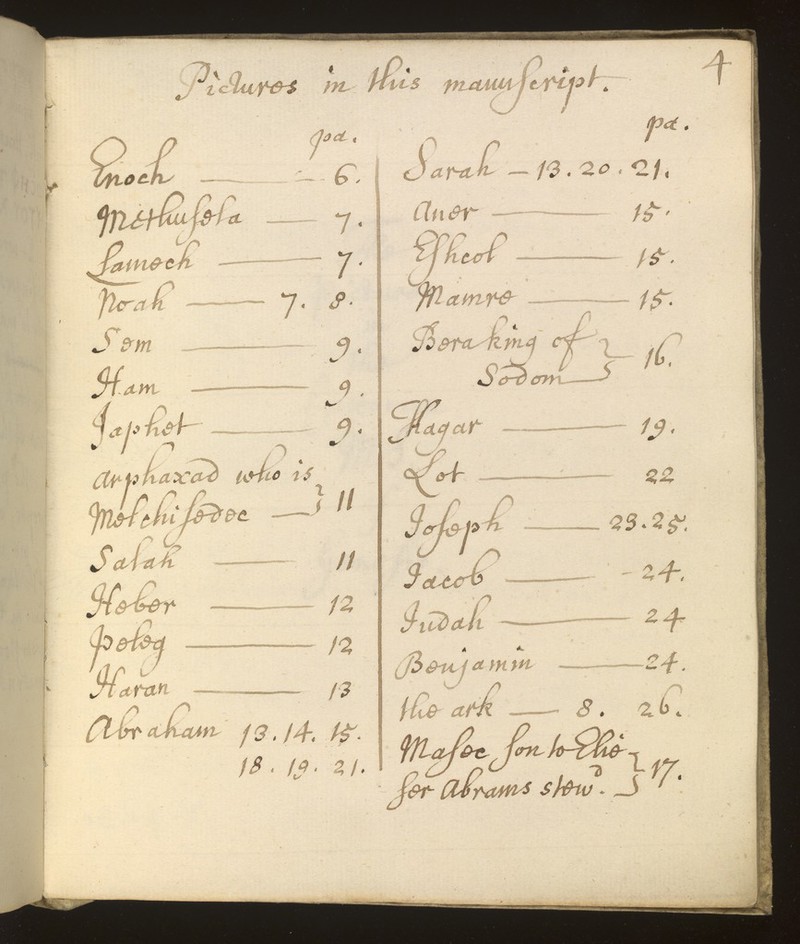 4
Pictures in this manuscript.
pa.
Enoch — 6.
Methusela — 7.
Lamech — 7.
Noah — 7. 8.
Sem — 9.
Ham — 9.
Japhet — 9.
arphaxad who is
Melchisedec — } 11
Salah — 11
Heber — 12
peleg — 12
Haran — 13
Abraham 13. 14. 15.
18. 19. 21.
pa.
Sarah — 13. 20. 21.
Aner — 15.
Eshcol — 15.
Mamre — 15.
Bera king of
Sodom — } 16.
Hagar — 19.
Lot — 22
Joseph — 23. 25.
Jacob — 24.
Judah — 24
Benjamin — 24.
the ark — 8. 26.
Masec son to Elie
ser Abrams stewd. } 17.